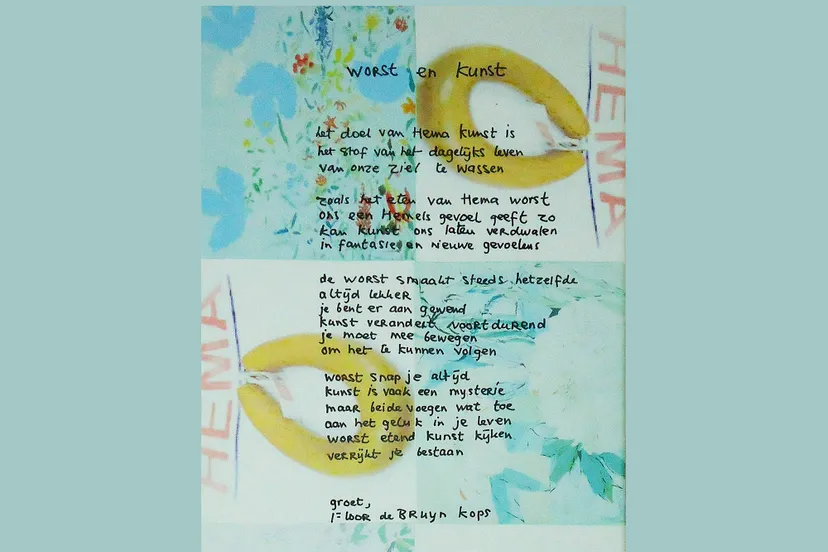 WORST en kunst
HEMA
het doel van Hema kunst is
het stof van het dagelijks leven
van onze ziel te wassen
zoals het eten van Hema worst
ons een Hemels gevoel geeft zo
kan kunst ons laten verdwalen
in fantasie en nieuwe gevoelens
de WORST smaakt steeds hetzelfde
altijd lekker
je bent er aan gewend
kunst verandert voortdurend
je moet mee bewegen
om het te kunnen volgen
HEMA
WORST snap je altijd
kunst is vaak een mysterie
maar beide voegen wat toe
aan het geluk in je leven
WORST etend kunst kijken
verrijkt je bestaan
groet,
Floor de BRuyn kops